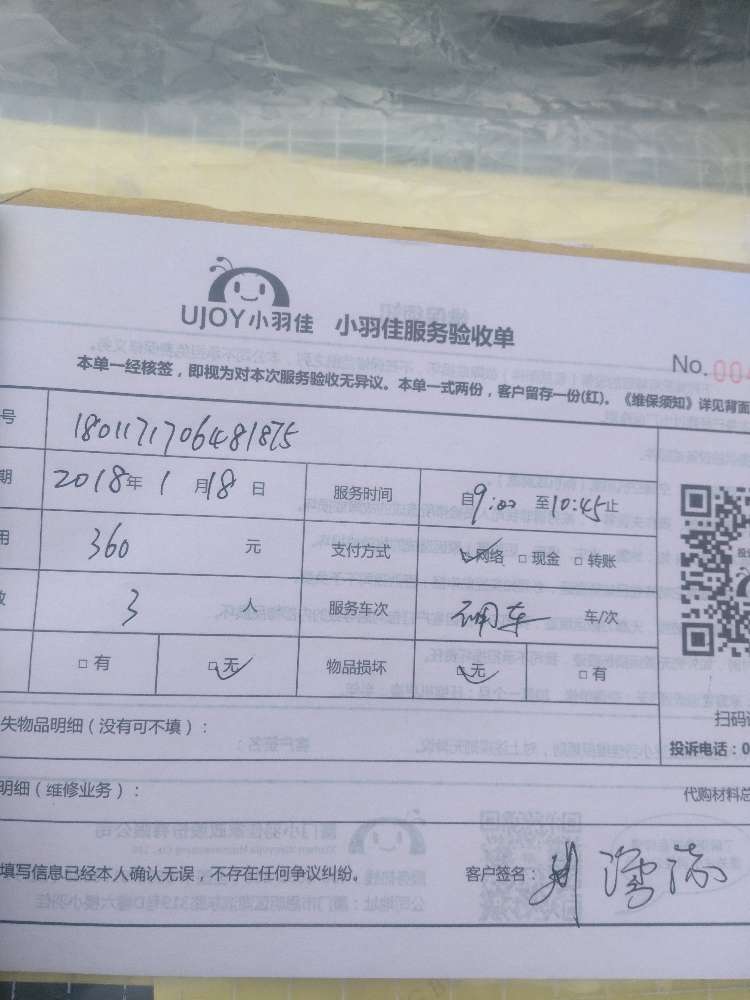 UJOY小羽佳 小羽佳服务验收单
No. 004
本单一经核签，即视为对本次服务验收无异议。本单一式两份，客户留存一份(红)。《维保须知》详见背面
号 1801171706481875
期 2018年 1月18日 服务时间 自9:00 至10:45止
用 360 元 支付方式 ☑网络 □现金 □转账
数 3 人 服务车次 车/次
□有 ☑无 物品损坏 ☑无 □有
扫码
失物品明细（没有可不填）：
投诉电话：0
明细（维修业务）：
代购材料总
填写信息已经本人确认无误，不存在任何争议纠纷。 客户签名：